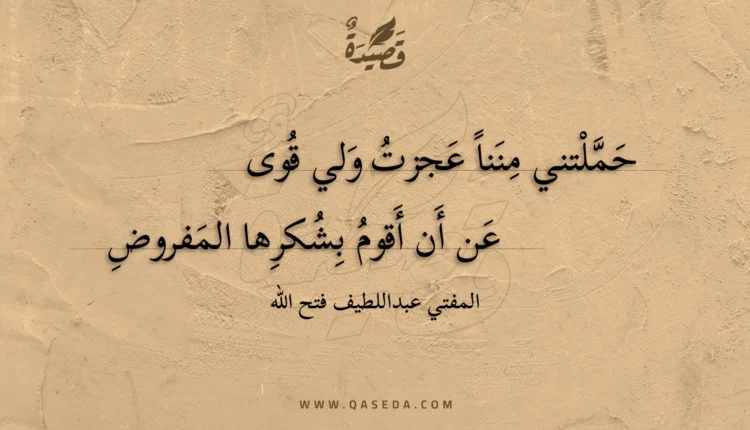 قَصِيدَةٌ
حَمَّلْتني مِنَناً عَجزتُ وَلي قُوى
عَن أَن أَقومُ بِشُكرِها المَفروضِ
المفتي عبداللطيف فتح الله
WWW.QASEDA.COM